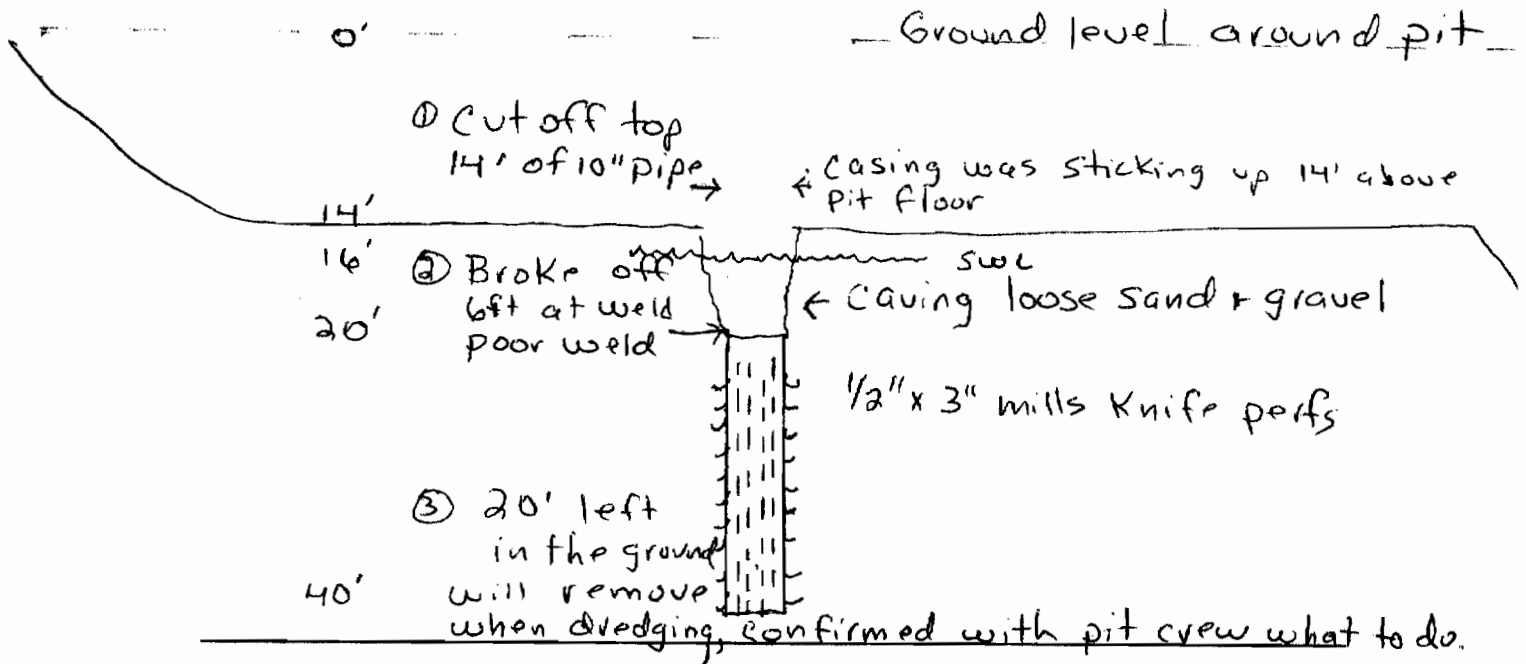 0'
Ground level around pit
① Cut off top
14' of 10" pipe
Casing was sticking up 14' above
pit floor
14'
16'
SWL
② Broke off
6ft at weld
poor weld
20'
Caving loose sand + gravel
1/2" x 3" mills Knife perfs
③ 20' left
in the ground
will remove
40'
when dredging, confirmed with pit crew what to do.